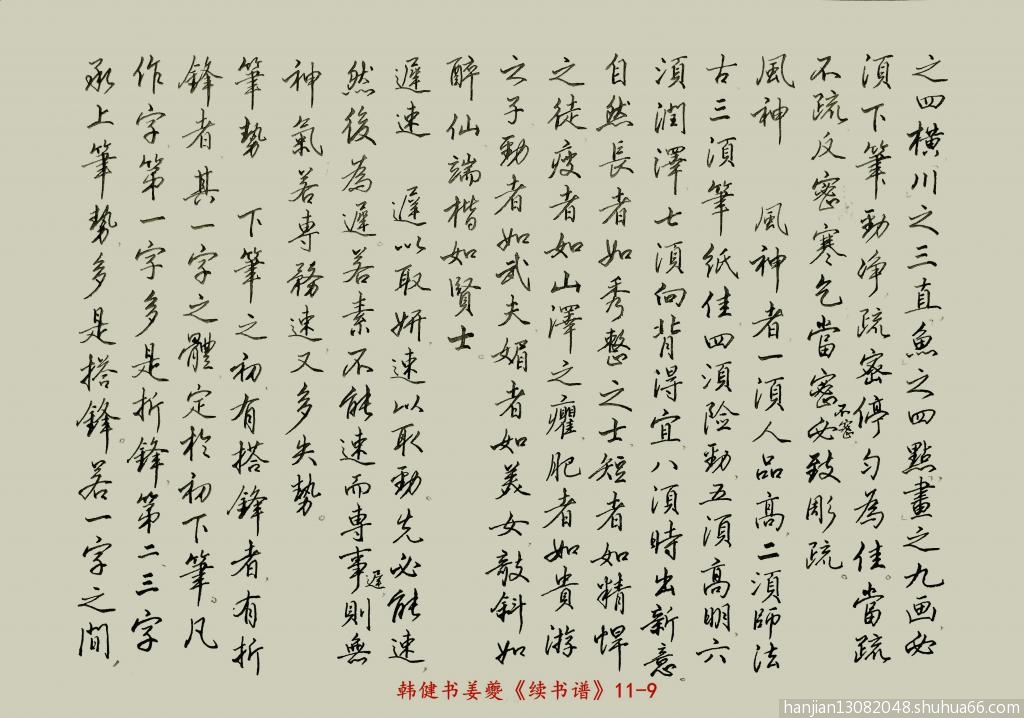 之四橫川之三直魚之四點畫之九画必
須下筆勁净疏密停匀為佳當疏
不疏反寒乞當密不密必致彫疏
風神　風神者一須人品高二須師法
古三須筆紙佳四須险勁五須高明六
須潤澤七須向背得宜八須時出新意
自然長者如秀整之士短者如精悍
之徒瘦者如山澤之癯肥者如貴游
之子勁者如武夫媚者如美女敧斜如
醉仙端楷如賢士
遲速　遲以取妍速以取勁先必能速
然後為遲若素不能速而專事遲則無
神氣若專務速又多失勢
筆勢　下筆之初有搭鋒者有折
鋒者其一字之體定於初下筆凡
作字第一字多是折鋒第二三字
承上筆勢多是搭鋒若一字之間
韩健书姜夔《续书谱》11-9
hanjian13082048.shuhua66.com